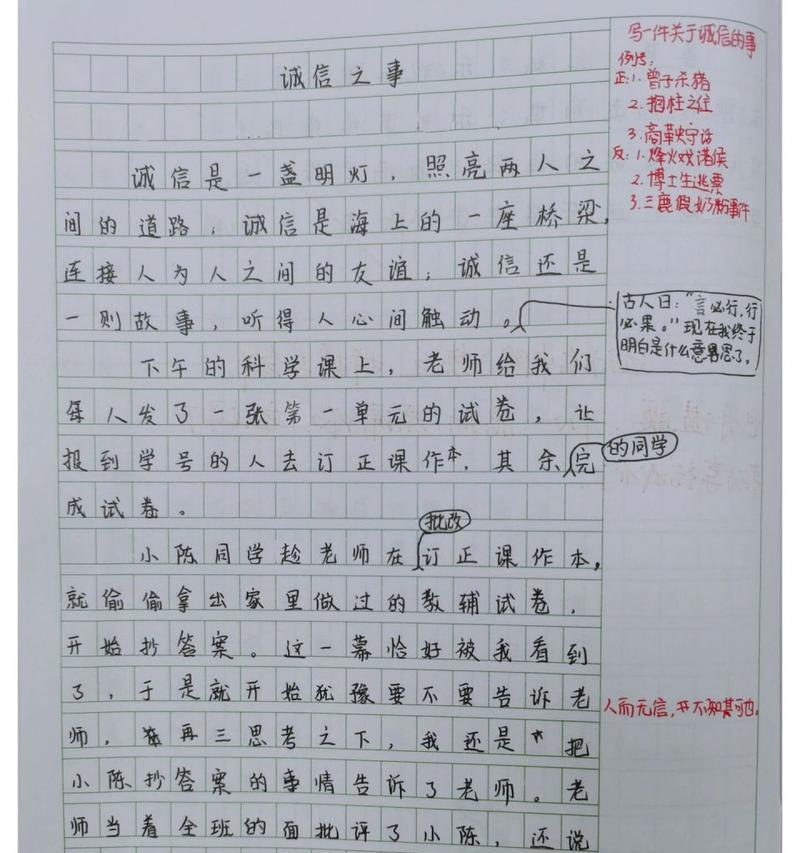 诚信之事
诚信是一盏明灯，照亮两人之
间的道路，诚信是海上的一座桥梁，
连接人为人之间的友谊；诚信还是
一则故事，听得人心间触动。
下午的科学课上，老师给我们
每人发了一张第一单元的试卷，让
报到学号的人去订正课作本，其余完
的同学
成试卷。
批改
小陈同学趁老师在订正课作本，
就偷偷拿出家里做过的教辅试卷，
开始抄答案。这一幕恰好被我看到
了，于是就开始犹豫要不要告诉老
师，在再三思考之下，我还是把
小陈抄答案的事情告诉了老师。老
师当着全班的面批评了小陈，还说
写一件关于诚信的事
例子：
正：1.曾子杀猪
2.抱柱之信
3.商鞅守诺
反：1.烽火戏诸侯
2.博士生逃票
3.三鹿假奶粉事件
古人曰：“言必行，行
必果。”现在我终于
明白是什么意思了。
人而无信，不知其可也。